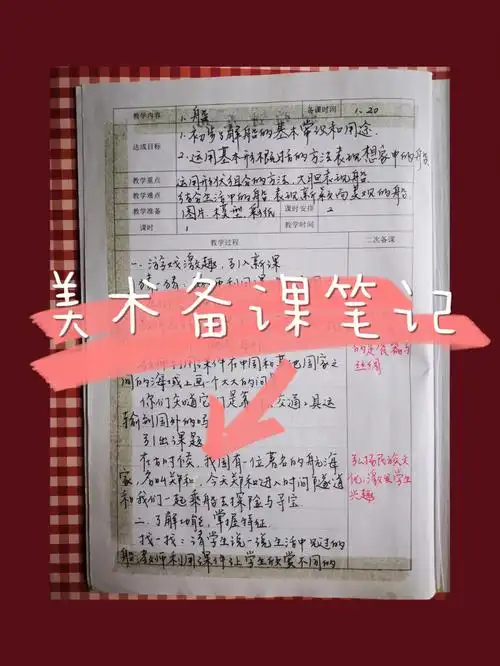 美术备课笔记
教学内容 1、船 备课时间 1.20
达成目标 1.初步了解船的基本常识和用途.
2.运用基本形概括的方法表现想象中的船
教学重点 运用形状组合的方法,大胆表现船
教学难点 结合生活中的船表现新颖而美观的船
教学准备 图片、模型、彩纸 课时安排 2
课时 1 教学时间
教学过程 二次备课
一、游戏激趣,引入新课
课件在中国和其他国家之
间的海域上画一个大大的问
你们知道它 是靠 交通工具运
输到国外的吗
引出课题
在古时候,我国有一位著名的航海
家,名叫郑和,今天郑和进入时间隧道
和我们一起乘船去探险与寻宝.
弘扬民族文
化,激发学生
兴趣
二、了解功能,掌握特征.
找一找:请学生说一说生活中见过的
船,教师利用课件让学生欣赏不同的